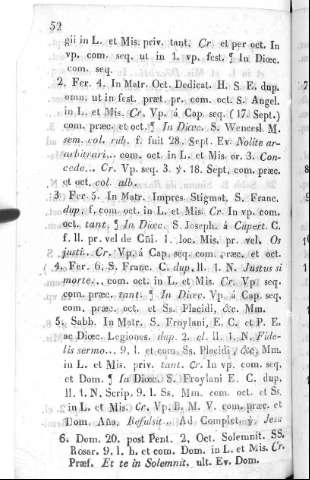 52
gii in L. et Mis. priv. tant. Cr. et per oct. In
vp. com. seq. ut in 1. vp. fest. ¶ In Diœc.
com. seq.
2. Fer. 4. In Matr. Oct. Dedicat. H. S. E. dup.
omn. ut in fest. præt. pr. com. oct. S. Angel.
in L. et Mis. Cr. Vp. á Cap. seq. (17. Sept.)
com. præc. et oct. ¶ In Diœc. S. Wencesl. M.
sem. col. rub. f. fuit 28. Sept. Ev. Nolite ar-
arbitrari... com. oct. in L. et Mis. or. 3. Con-
cede... Cr. Vp. seq. 3. 18. Sept. com. præc.
et oct. col. alb.
3 Fer 5. In Matr. Impres Stigmat. S. Franc.
dup. f. com. oct. in L. et Mis. Cr. In vp. com.
oct. tant. ¶ In Diœc S. Joseph. á Cupert. C.
f. ll. pr. vel de Cñi. 1. loc. Mis. pr. vel. Os
justi.. Cr. Vp. á Cap. seq. com. præc. et oct.
4. Fer. 6. S. Franc. C. dup. ll. 1. N. Justus si
morte... com. oct. in L. et Mis. Cr. Vp. seq.
com. præc. tant. ¶ In Diœc. Vp. á Cap. seq.
com. præc. oct. et Ss. Placidi, &c. Mm.
5. Sabb. In Matr. S. Froylani, E. C. et P. E.
ac Diœc. Legiones. dup. 2. cl. ll. 1. N. Fide-
lis sermo... 9. l. et com. Ss. Placidi, &c. Mm.
in L. et Mis. priv. tant. Cr. In vp. com. seq.
et Dom. ¶ In Diœc. S. Froylani E. C. dup.
ll. 1. N. Scrip. 9. l. Ss. Mm. com. oct. et Ss.
in L. et Mis. Cr. Vp. B. M. V. com. præc. et
Dom. Aña. Refulsit.. Ad Complet. Jesu
6. Dom. 20. post Pent. 2. Oct. Solemnit. SS.
Rosar. 9. l. h. et com. Dom. in L. et Mis. Cr.
Præf. Et te in Solemnit. ult. Ev. Dom.